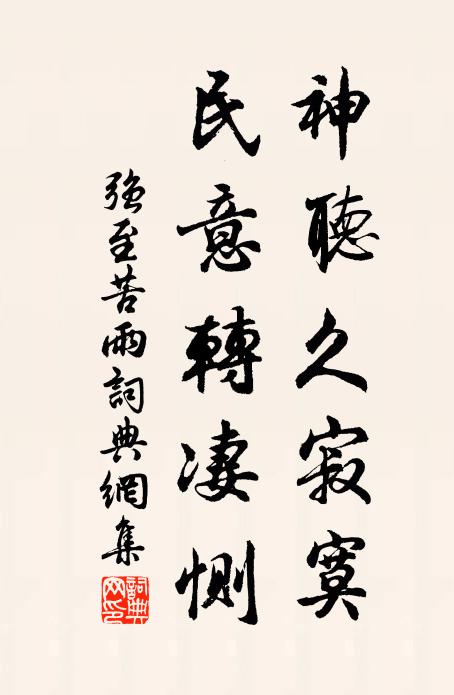 神聽久寂寞
民意轉淒惻
強至苦雨詞典網集
詞典網印